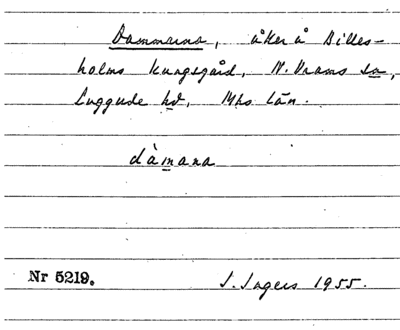 Dammarna, åker å Billes-
holms kungsgård, N. Vrams sn,
Luggude hd, Mhs län.
dàmana
Nr 5219.
I. Ingers 1955.